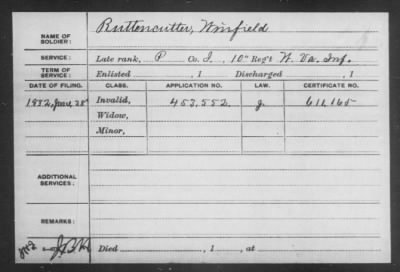 NAME OF SOLDIER: Buttencutter, Winfield
SERVICE: Late rank, P Co. I, 10" Reg't W. Va. Inf.
TERM OF SERVICE: Enlisted , 1 Discharged , 1
DATE OF FILING. CLASS. APPLICATION NO. LAW. CERTIFICATE NO.
1882, June 28" Invalid, 453.552. g. 611.165
Widow,
Minor,
ADDITIONAL SERVICES:
REMARKS:
Died , 1 , at